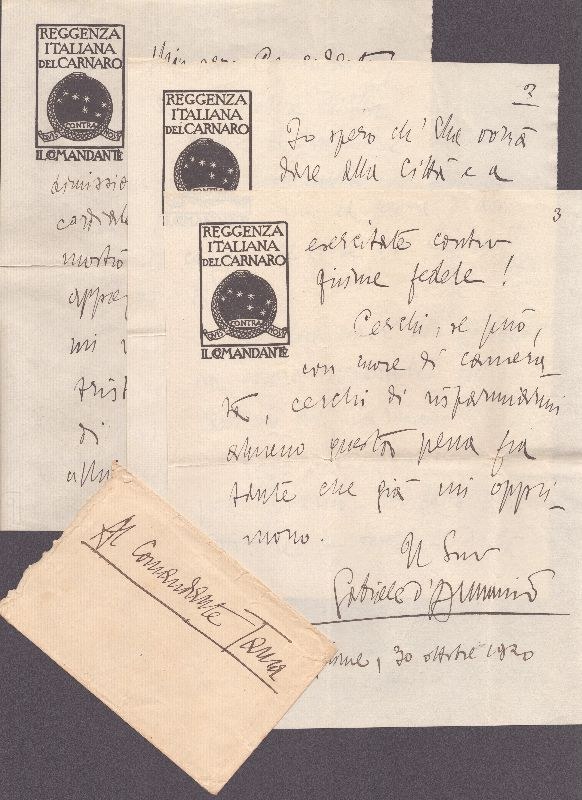 REGGENZA
ITALIANA
DEL CARNARO
CONTRA
IL COMANDANTE
mostrò
mi
di
2
REGGENZA
ITALIANA
DEL CARNARO
Io spero ch'Ella vorrà
dare alla Città e a
3
REGGENZA
ITALIANA
DEL CARNARO
CONTRA
IL COMANDANTE
esercitate contro
Fiume fedele!
Cerchi, se può,
con cuore di camera
ta, cerchi di risparmiarmi
almeno questa pena fra
tante che già mi oppri
mono.
Il Suo
Gabriele d'Annunzio
Fiume, 30 ottobre 1920
Al Comandante